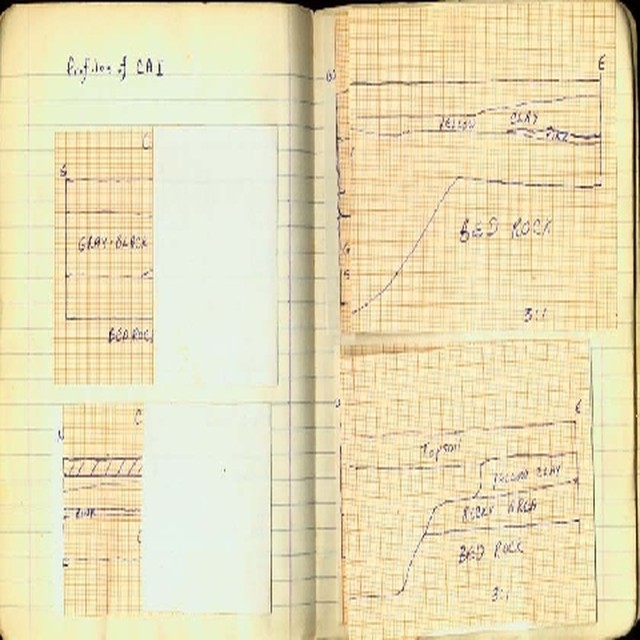 Profiles of CAI
C
S
GRAY-BLACK
BEDROCK
N
C
E
YELLOW CLAY
BED ROCK
3:1
E
Topsoil
YELLOW CLAY
ROCKY AREA
BED ROCK
3:1